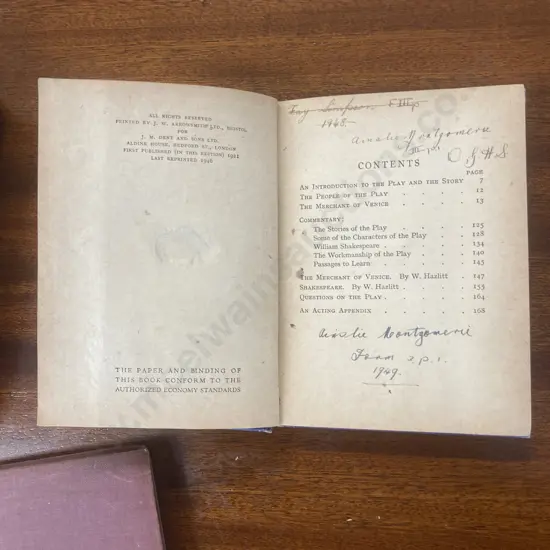 ALL RIGHTS RESERVED
PRINTED BY J. W. ARROWSMITH LTD., BRISTOL
FOR
J. M. DENT AND SONS LTD.
ALDINE HOUSE, BEDFORD ST., LONDON
FIRST PUBLISHED (IN THIS EDITION) 1921
LAST REPRINTED 1946
THE PAPER AND BINDING OF
THIS BOOK CONFORM TO THE
AUTHORIZED ECONOMY STANDARDS
Fay Simpson
1948.
Amalie Montgomerie
O.G.H.S
CONTENTS
PAGE
AN INTRODUCTION TO THE PLAY AND THE STORY 7
THE PEOPLE OF THE PLAY . . . . 12
THE MERCHANT OF VENICE . . . . 13
COMMENTARY:
The Stories of the Play . . . . 125
Some of the Characters of the Play . . 128
William Shakespeare . . . . 134
The Workmanship of the Play . . . 140
Passages to Learn . . . . . 143
THE MERCHANT OF VENICE. By W. Hazlitt . 147
SHAKESPEARE. By W. Hazlitt . . . . 153
QUESTIONS ON THE PLAY . . . . . 164
AN ACTING APPENDIX . . . . . 168
Amalie Montgomerie
Form
1949.